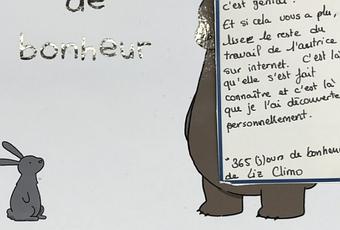 de
bonheur
c'est génial !
Et si cela vous a plu,
lisez le reste du
travail de l'autrice
sur internet. C'est là
qu'elle s'est fait
connaître et c'est là
que je l'ai découverte
personnellement.
*365 (j)ours de bonheur
de Liz Climo